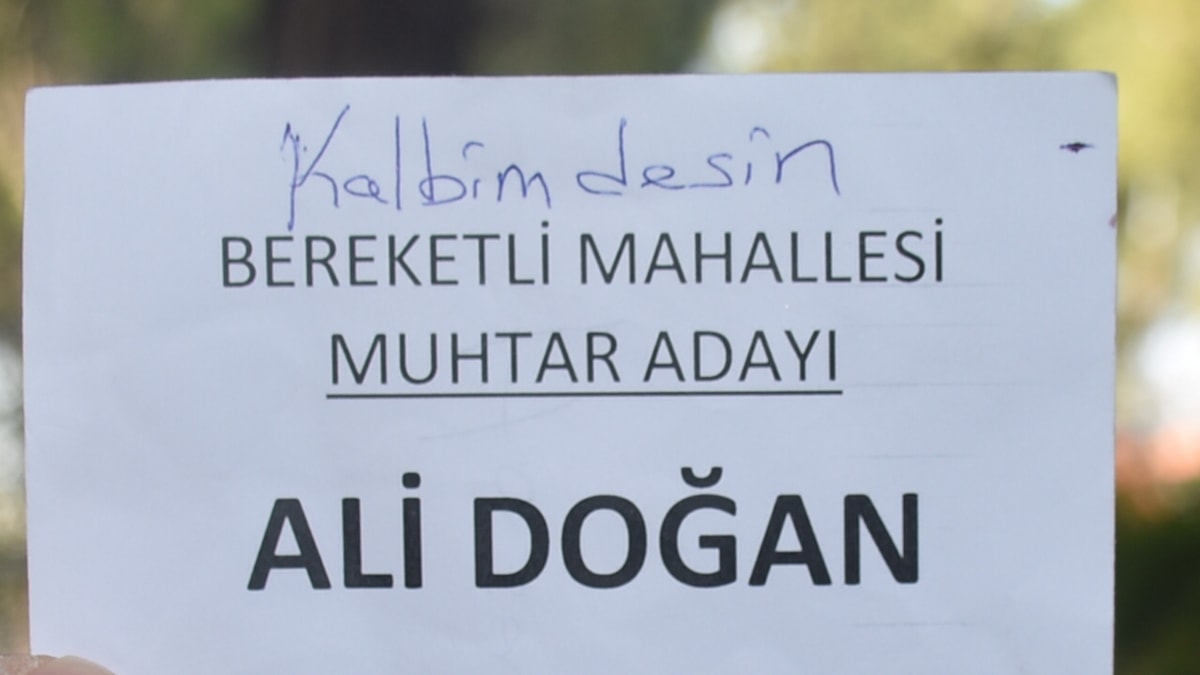 Kalbimdesin
BEREKETLİ MAHALLESİ
MUHTAR ADAYI
ALİ DOĞAN